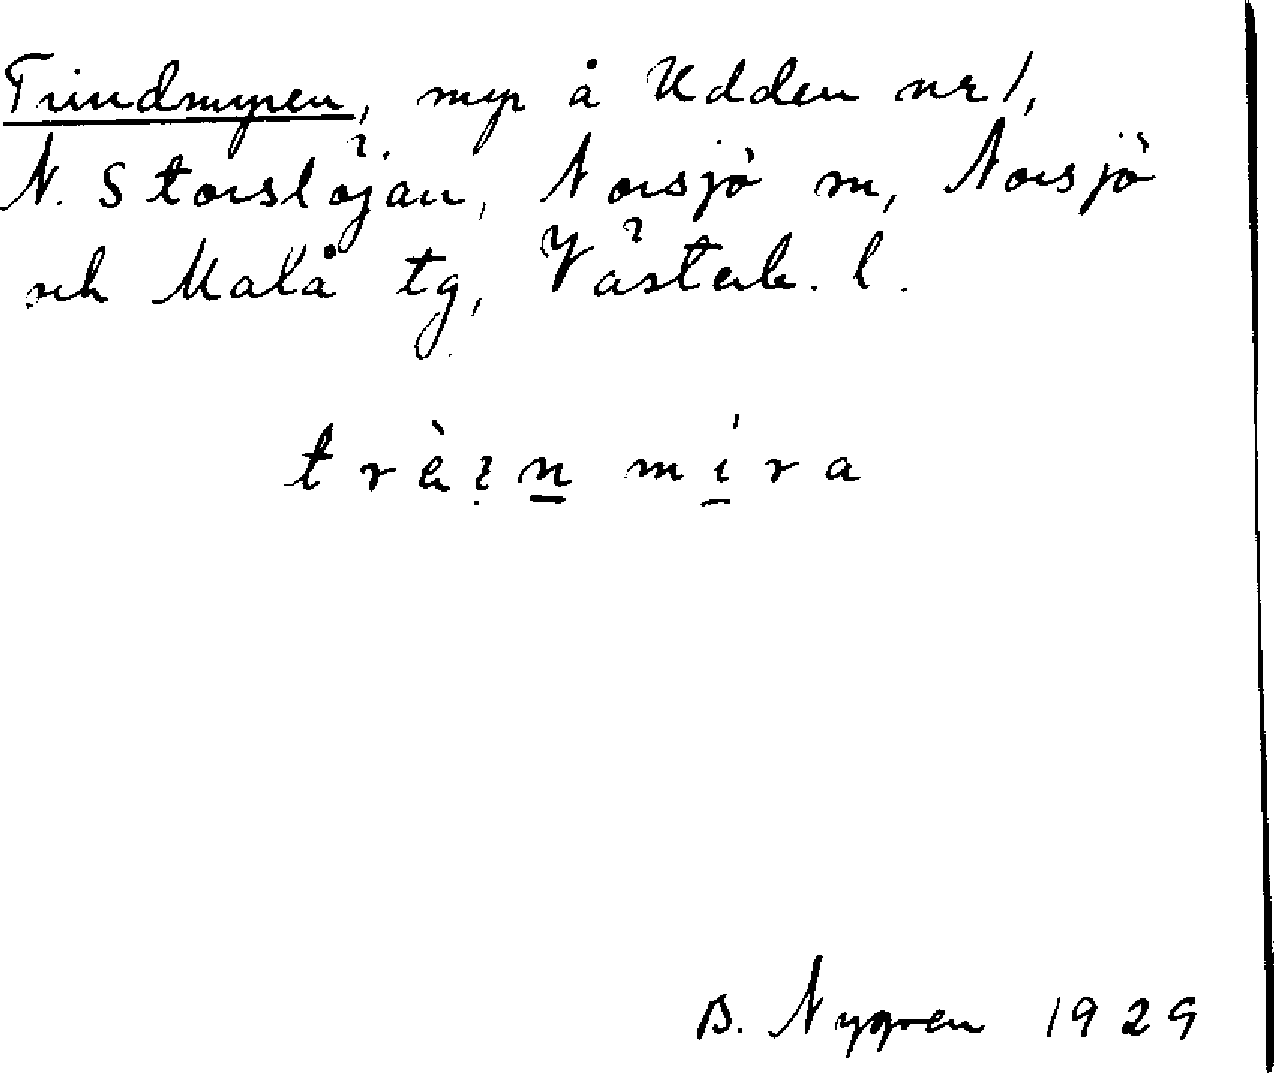 Trindmyren, myr å Udden nr 1,
N. Storslöjan, Norsjö sn, Norsjö
och Malå tg, Västerb. l.
mira
B. Nygren 1929